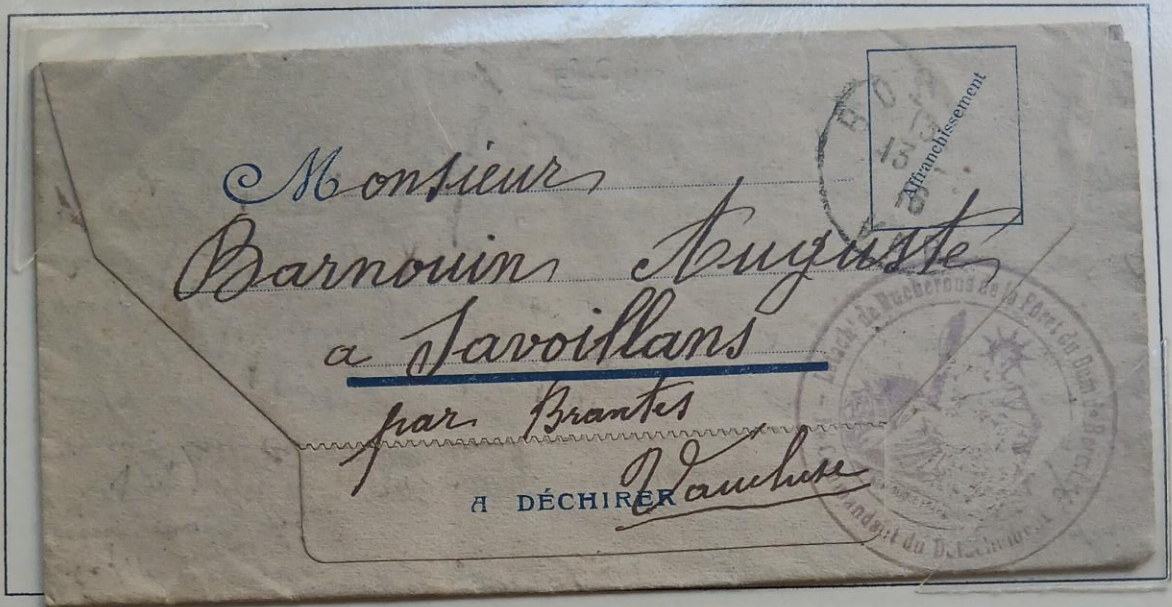 Affranchissement
Monsieur
Barnouin Auguste
a Savoillans
par Brantes
Vaucluse
A DÉCHIRER
de Bucherons de la Forêt du
Commandant du Detachement